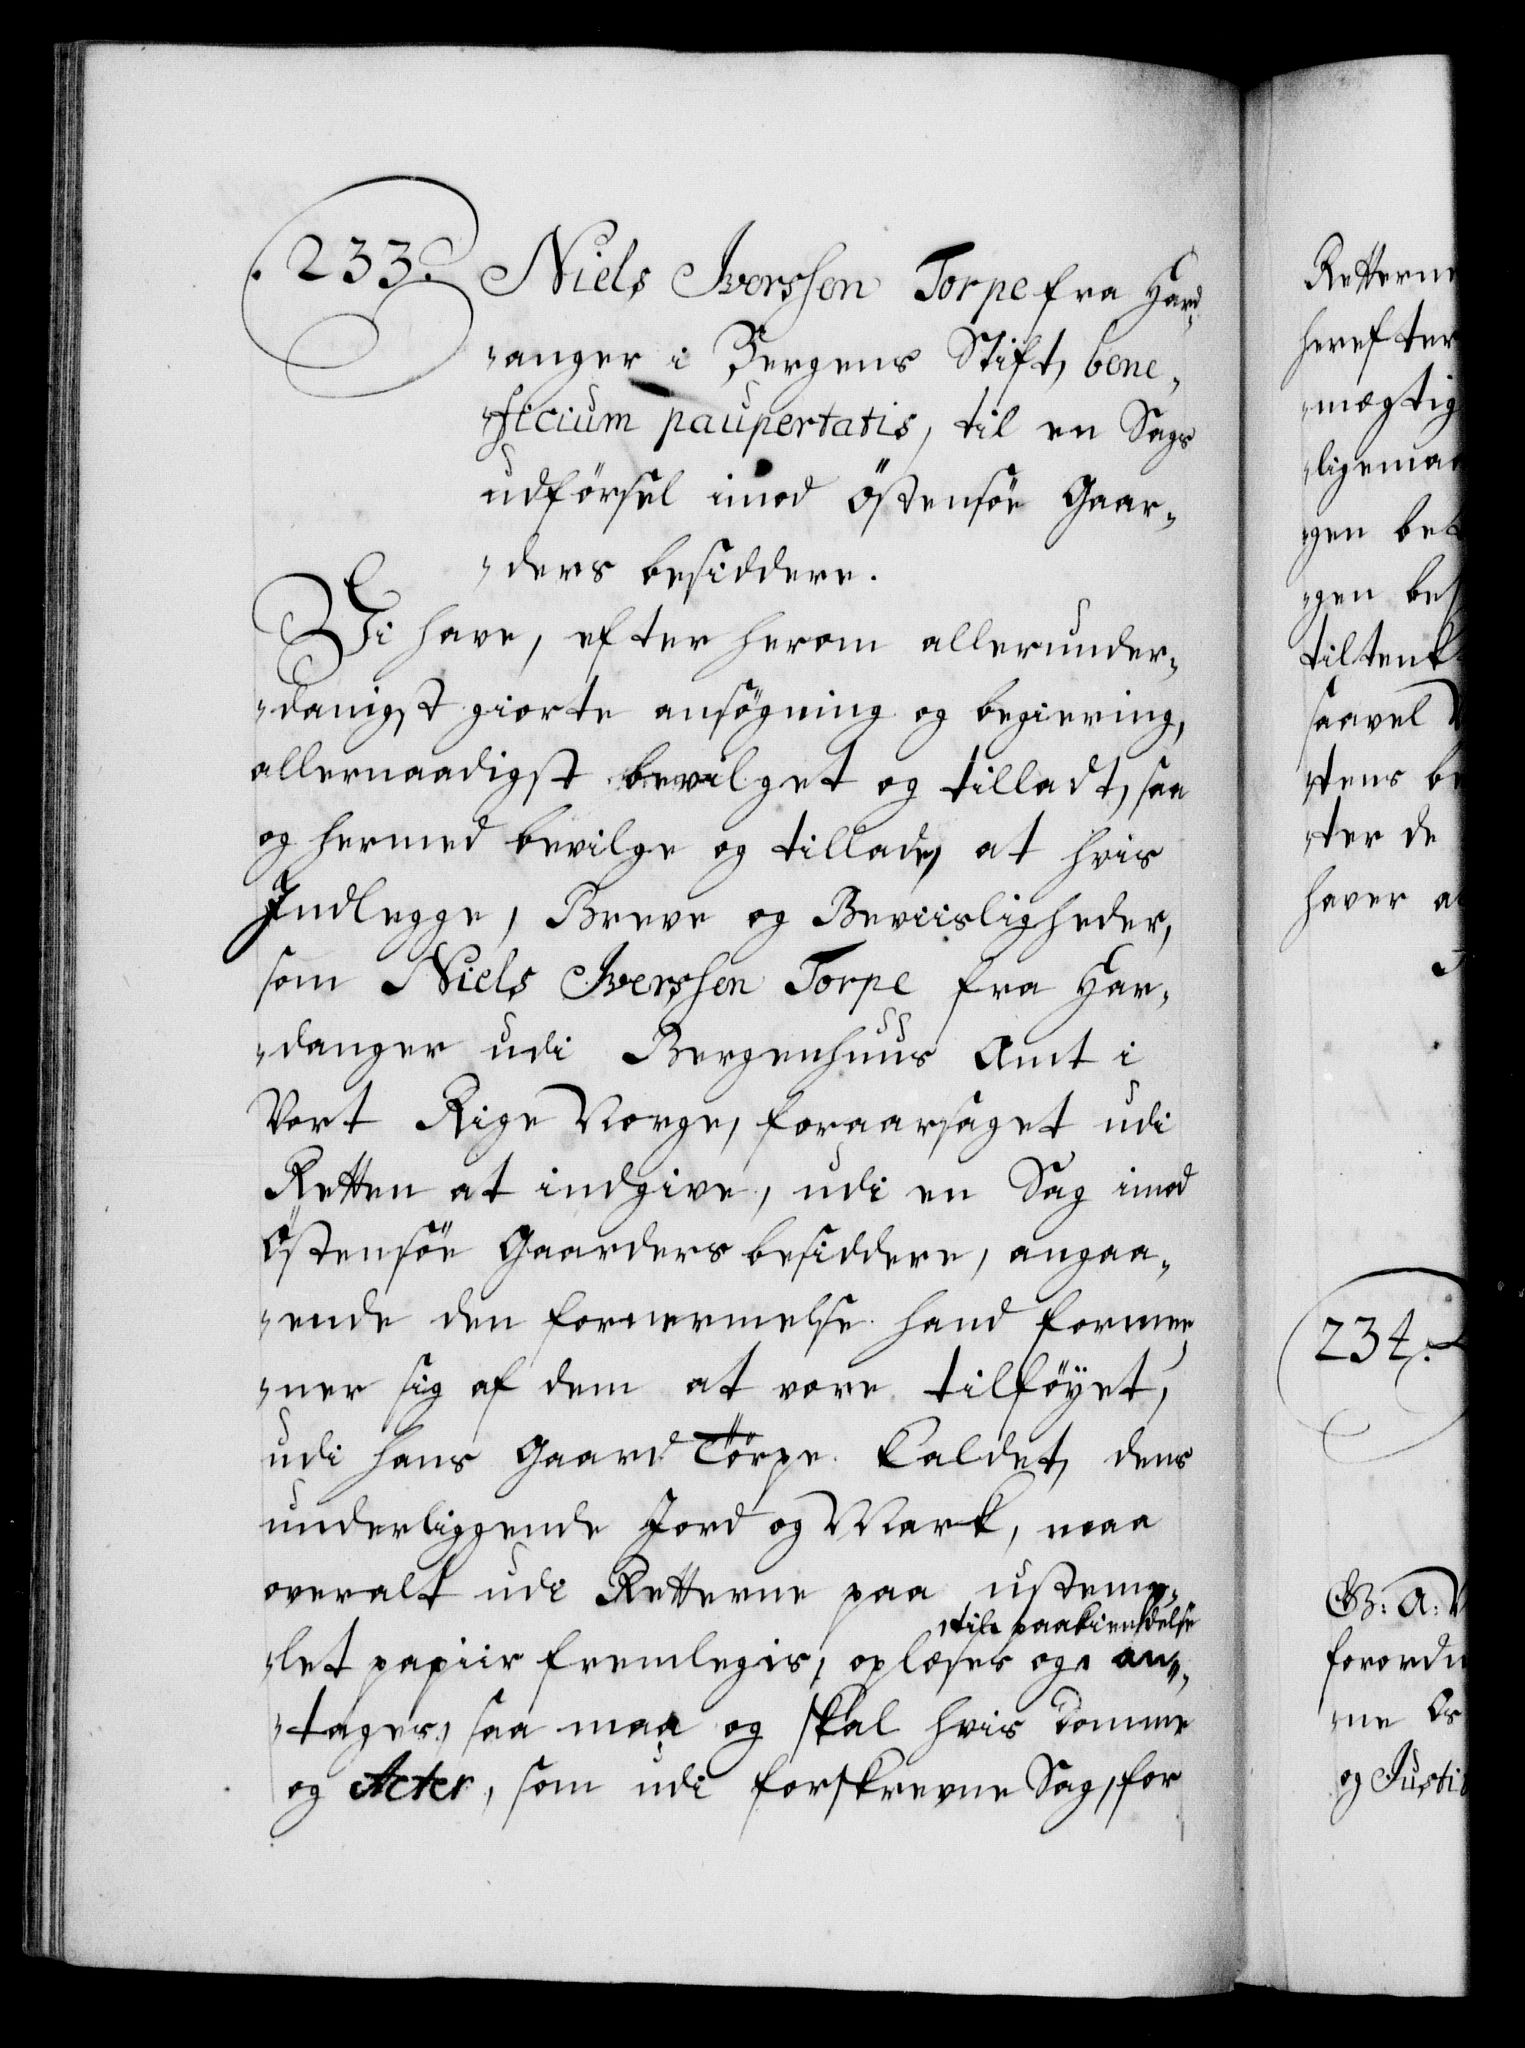 .233. Niels Iverssen Torpe fra Hard-
-anger i Bergens Stift, bene-
-ficium paupertatis, til en Sags
udförsel imod Östensöe Gaar-
-ders besiddere.
Vi have, efter herom allerunder-
-danigst giorte ansögning og begiering,
allernaadigst bevilget og tilladt, saa
og hermed bevilge og tillade, at hvis
Indlegge, Breve og Beviisligheder,
som Niels Iverssen Torpe fra Har-
-danger udi Bergenhuus Amt i
Vort Rige Norge, foraarsaget udi
Retten at indgive, udi en Sag imod
Östensöe Gaarders besiddere, angaa-
-ende den fornermelse hand formee-
-ner sig af dem at vere tilföyet,
udi hans Gaard Törpe kaldet, dens
underliggende Jord og Mark, maa
overalt udi Retterne paa ustemp-
til paakiendelse
-let papiir fremlegis, oplæses og an-
-tages, saa maa og skal hvis Domme
og Acter, som udi forskrevne Sag, for
Retterne
herefter
-mægtig
-ligemaa
-gen
-gen
tiltent
saavel
-tens
-ter de
haver
234.
G: A: V
forordn
-ne
og Justi